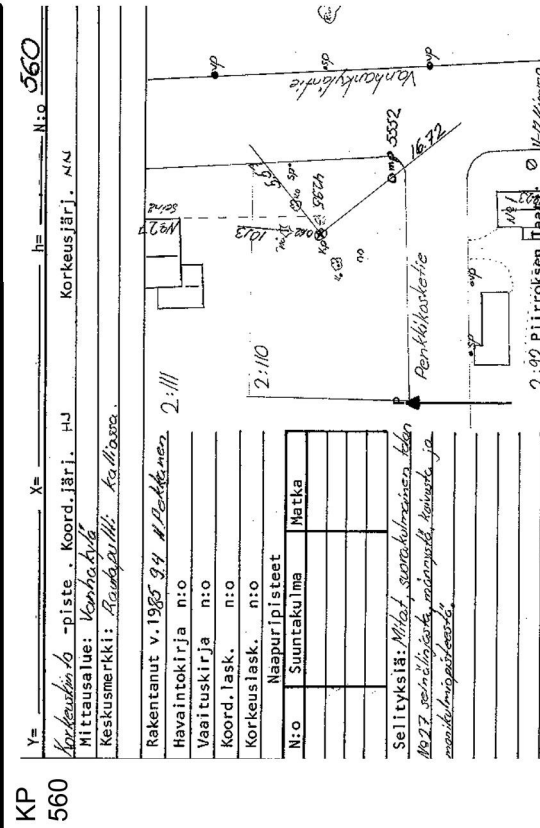 KP
560
Y= X= h= N:o 560
Korkeuskiinto -piste . Koord.järj. HJ Korkeusjärj. NN
Mittausalue: Vanhakylä
Keskusmerkki: Rautapultti kalliossa.
Rakentanut v. 1985 9.4 Pekkanen
Havaintokirja n:o
Vaaituskirja n:o
Koord.lask. n:o
Korkeuslask. n:o
Naapuripisteet
N:o Suuntakulma Matka
Selityksiä: Mitat, suorakulmainen talon
No 27 seinälinjasta, männystä, koivusta ja
monikulmiopisteestä.
No 27
seinä
2:111
2:110
10.13
4295
Kp
ko
sp
mp 5552
16.72
Vanhankyläntie
vp
sp
vp
Penkkikoskentie
P
sp
vp
1 ½ N
2:90 Piirroksen